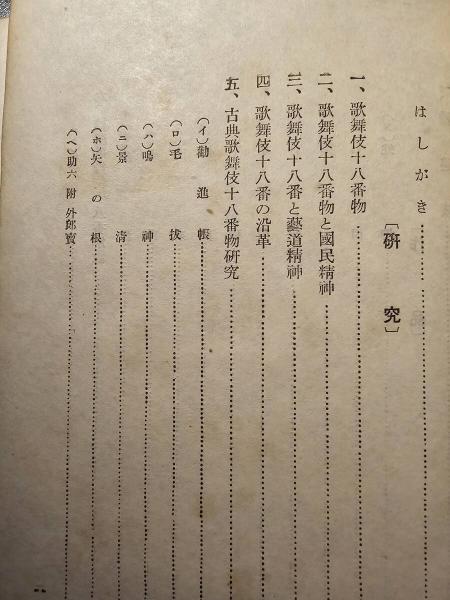 はしがき
〔研究〕
一、歌舞伎十八番物
二、歌舞伎十八番物と國民精神
三、歌舞伎十八番と藝道精神
四、歌舞伎十八番の沿革
五、古典歌舞伎十八番物研究
（イ）勸進帳
（ロ）毛拔
（ハ）鳴神
（ニ）景清
（ホ）矢の根
（ヘ）助六 附 外郎賣